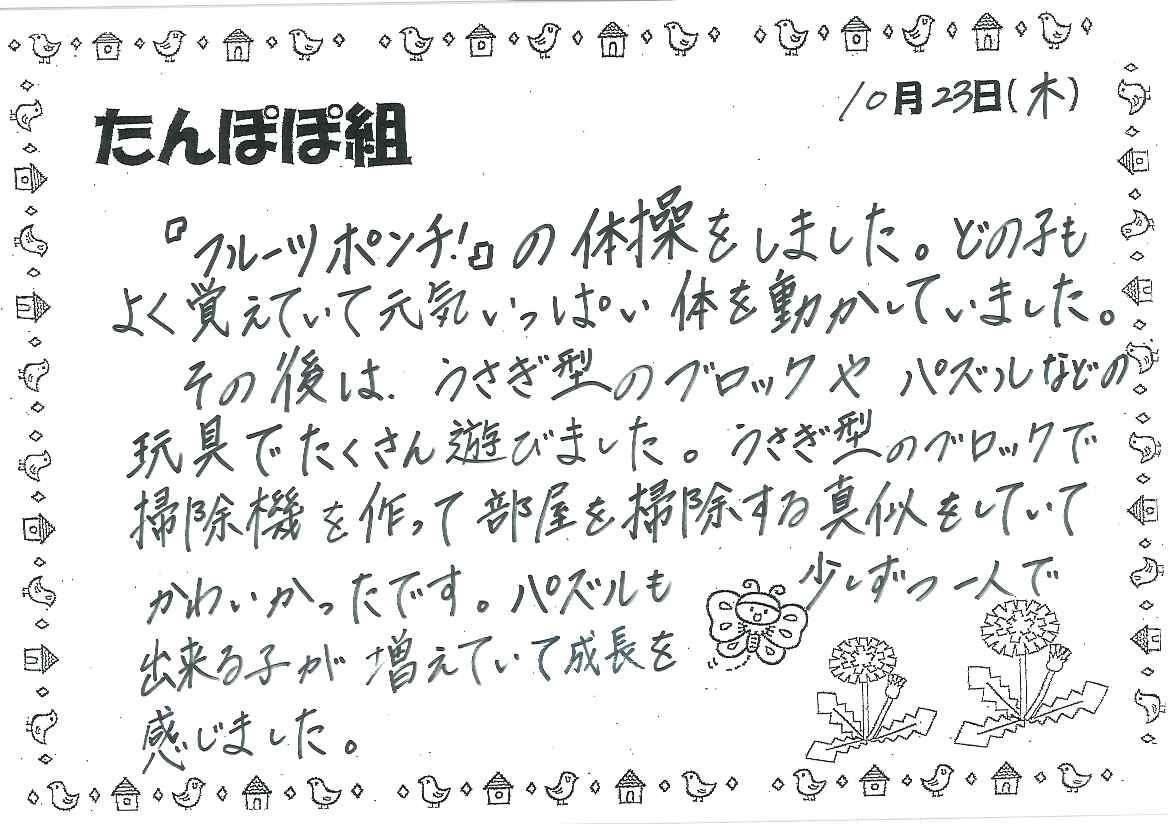 たんぽぽ組
10月23日(木)
『フルーツポンチ!』の体操をしました。どの子も
よく覚えていて元気いっぱい体を動かしていました。
その後は、うさぎ型のブロックや パズルなどの
玩具でたくさん遊びました。うさぎ型のブロックで
掃除機を作って部屋を掃除する真似をしていて
かわいかったです。パズルも 少しずつ一人で
出来る子が増えていて成長を
感じました。